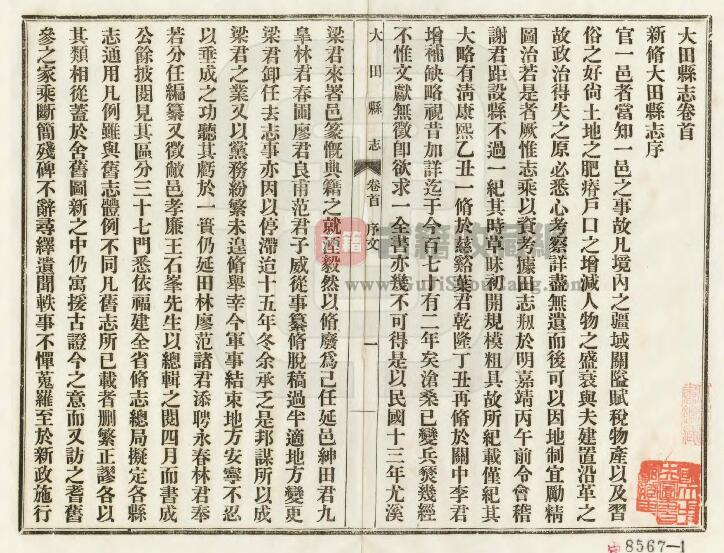 大田縣志卷首
新脩大田縣志序
官一邑者當知一邑之事故凡境內之疆域關隘賦稅物產以及習
俗之好尙土地之肥瘠戶口之增減人物之盛衰與夫建置沿革之
故政治得失之原必悉心考察詳盡無遺而後可以因地制宜勵精
圖治若是者厥惟志乘以資考據田志剏於明嘉靖丙午前令會稽
謝君距設縣不過一紀其時草昧初開規模粗具故所紀載僅紀其
大略有淸康熙乙丑一脩於慈谿葉君乾隆丁丑再脩於關中李君
增補缺略視昔加詳迄于今百七十有二年矣滄桑已變兵燹幾經
不惟文獻無徵卽欲求一全書亦幾不可得是以民國十三年尤溪
大田縣志 卷首 序文 一
梁君來署邑篆慨典籍之就湮毅然以脩廢爲己任延邑紳田君九
臯林君春圃廖君良甫范君子威從事纂脩脫稿過半適地方變更
梁君卸任去志事亦因以停滯迨十五年冬余承乏是邦謀所以成
梁君之業又以黨務紛繁未遑脩舉幸今軍事結束地方安寧不忍
以垂成之功聽其虧於一簣仍延田林廖范諸君添聘永春林君奉
若分任編纂又徵敝邑孝廉王石峯先生以總輯之閱四月而書成
公餘披閱見其區分三十七門悉依福建全省脩志總局擬定各縣
志通用凡例雖與舊志體例不同凡舊志所已載者刪繁正謬各以
其類相從蓋於舍舊圖新之中仍寓援古證今之意而又訪之耆舊
參之家乘斷簡殘碑不辭尋繹遺聞軼事不憚蒐羅至於新政施行
古籍收藏網
www.GuJiShouCang.com
8567-1